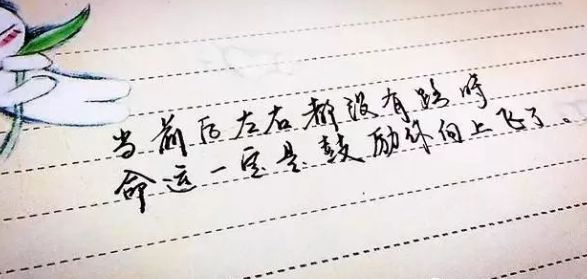 当前后左右都没有路时
命运一定是鼓励你向上飞了。